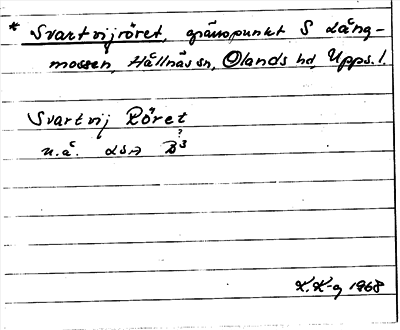 * Svartvijröret, gränspunkt S Lång-
mossen, Hållnäs sn, Olands hd, Upps. l.
Svartvij Röret
u.å. LSA B³
?
K.K-g 1968